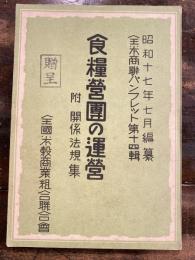 昭和十七年七月編纂
全米商聯パンフレット第十四輯
食糧營團の運營
附 關係法規集
贈呈
全國米穀商業組合聯合會